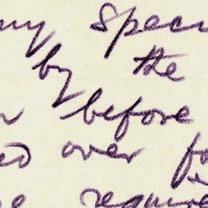 my speci
by the
r before
ed over fo
e require